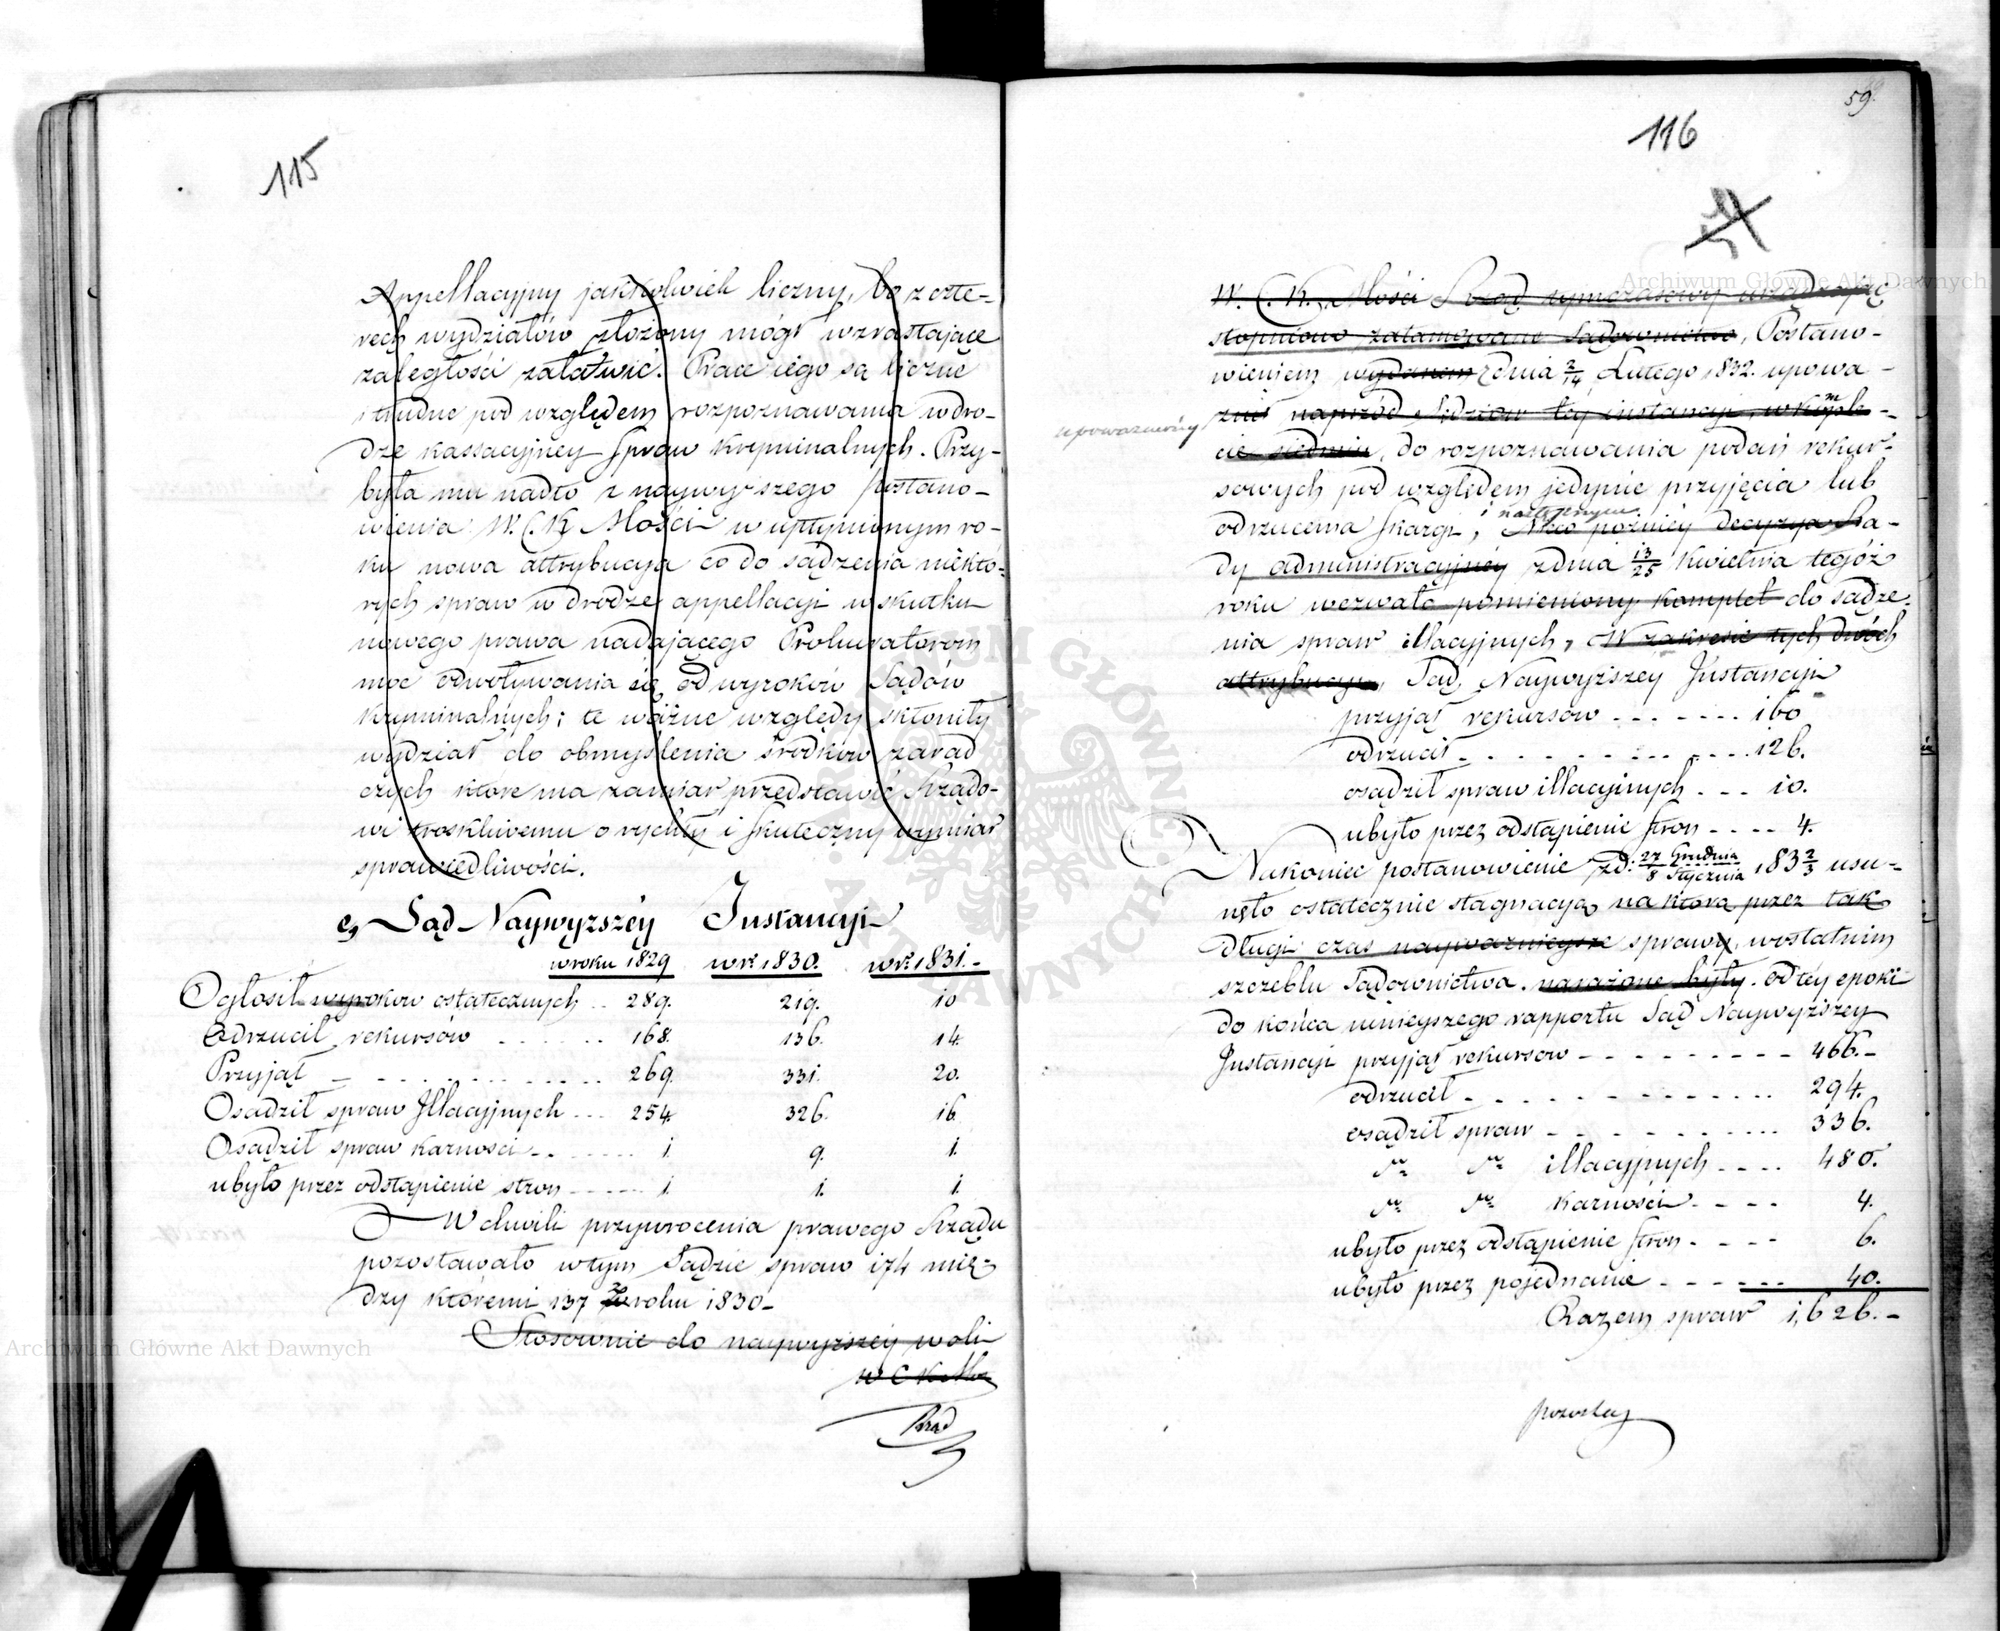 115
Appellacyjny jakkolwiek liczny, bo z czte-
rech wydziałów złożony mógł wzrastające
zaległości załatwić. Prace iego są liczne
i trudne pod względem rozpoznawania w dro-
dze kassacyjney Spraw Kryminalnych. Przy-
była mu nadto z naywyższego postano-
wienia W. C. K Mości w upłynionym ro-
ku nowa attrybucya co do sądzenia niektó-
rych spraw w drodze appellacyi w skutku
nowego prawa nadającego Prokuratorom
moc odwoływania się od wyroków Sądów
Kryminalnych; te ważne względy skłoniły
wydział do obmyślenia środków zarad
czych które ma zamiar przedstawić Rządo-
wi troskliwemu o rychły i skuteczny wymiar
sprawiedliwości.
e, Sąd Naywyższéy Instancyi
w roku 1829 w r. 1830. w r. 1831.-
Ogłosił wyroków ostatecznych .. 289. 219. 10
Odrzucił rekursów . . . . . . 168. 136. 14.
Przyjął - - . . . . . . . . 269. 331. 20.
Osądził spraw Illacyjnych ... 254. 326. 16.
Osądził spraw karności . . . . . . 1. 9. 1.
ubyło przez odstąpienie stron ...... 1. 1. 1.
W chwili przywrócenia prawego Rządu
pozostawało w tym Sądzie spraw 174 mię-
dzy któremi 137 z roku 1830-
Stosownie do naywyższéy woli
W C K Mci
Rząd
59.
116
W. C. K. Mości Rząd tymczasowy urządzając
stopniowo zatamowane Sądownictwo, Postano-
wieniem wydanem z dnia 2/14 Lutego 1832. upowa-
żnił naprzód Sędziów téy instancyi, w komple-
upoważniony
cie siedmiu, do rozpoznawania podań rekur-
sowych pod względem jedynie przyjęcia lub
i następnym
odrzucenia skargi, Nieco późniéy decyzya Ra-
dy administracyjnéy z dnia 13/25 Kwietnia tegóż
roku wezwała pomieniony komplet do sądze-
nia spraw illacyjnych, W zakresie tych dwóch
attrybucyi, Sąd Naywyższéy Instancyi
przyjął rekursów . . . . . . . 160
odrzucił . . . . . . . . . . . 126.
osądził spraw illacyjnych . . . 10.
ubyło przez odstąpienie stron . . . . 4.
Nakoniec postanowienie z d: 27 Grudnia/8 Stycznia 183 2/3 usu-
nęło ostatecznie stagnacyą na którą przez tak
długi czas nayważnieysze sprawy, w ostatnim
szczeblu Sądownictwa. narażone były. od téy epoki
do końca ninieyszego rapportu Sąd Naywyższéy
Instancyi przyjął rekursów - - - - - - - - - 466.-
odrzucił - . . . . . . . . . . . 294.
osądził spraw - . . . . . . . . . 336.
" " illacyjnych - . . . 480.
" " karności - . . . 4.
ubyło przez odstąpienie stron - . . . 6.
ubyło przez pojednanie - . . . . . . 40.
Razem spraw 1,626.-
pozostaj
Archiwum Główne Akt Dawnych
Archiwum Główne Akt Dawnych
ARCHIWUM GŁÓWNE AKT DAWNYCH